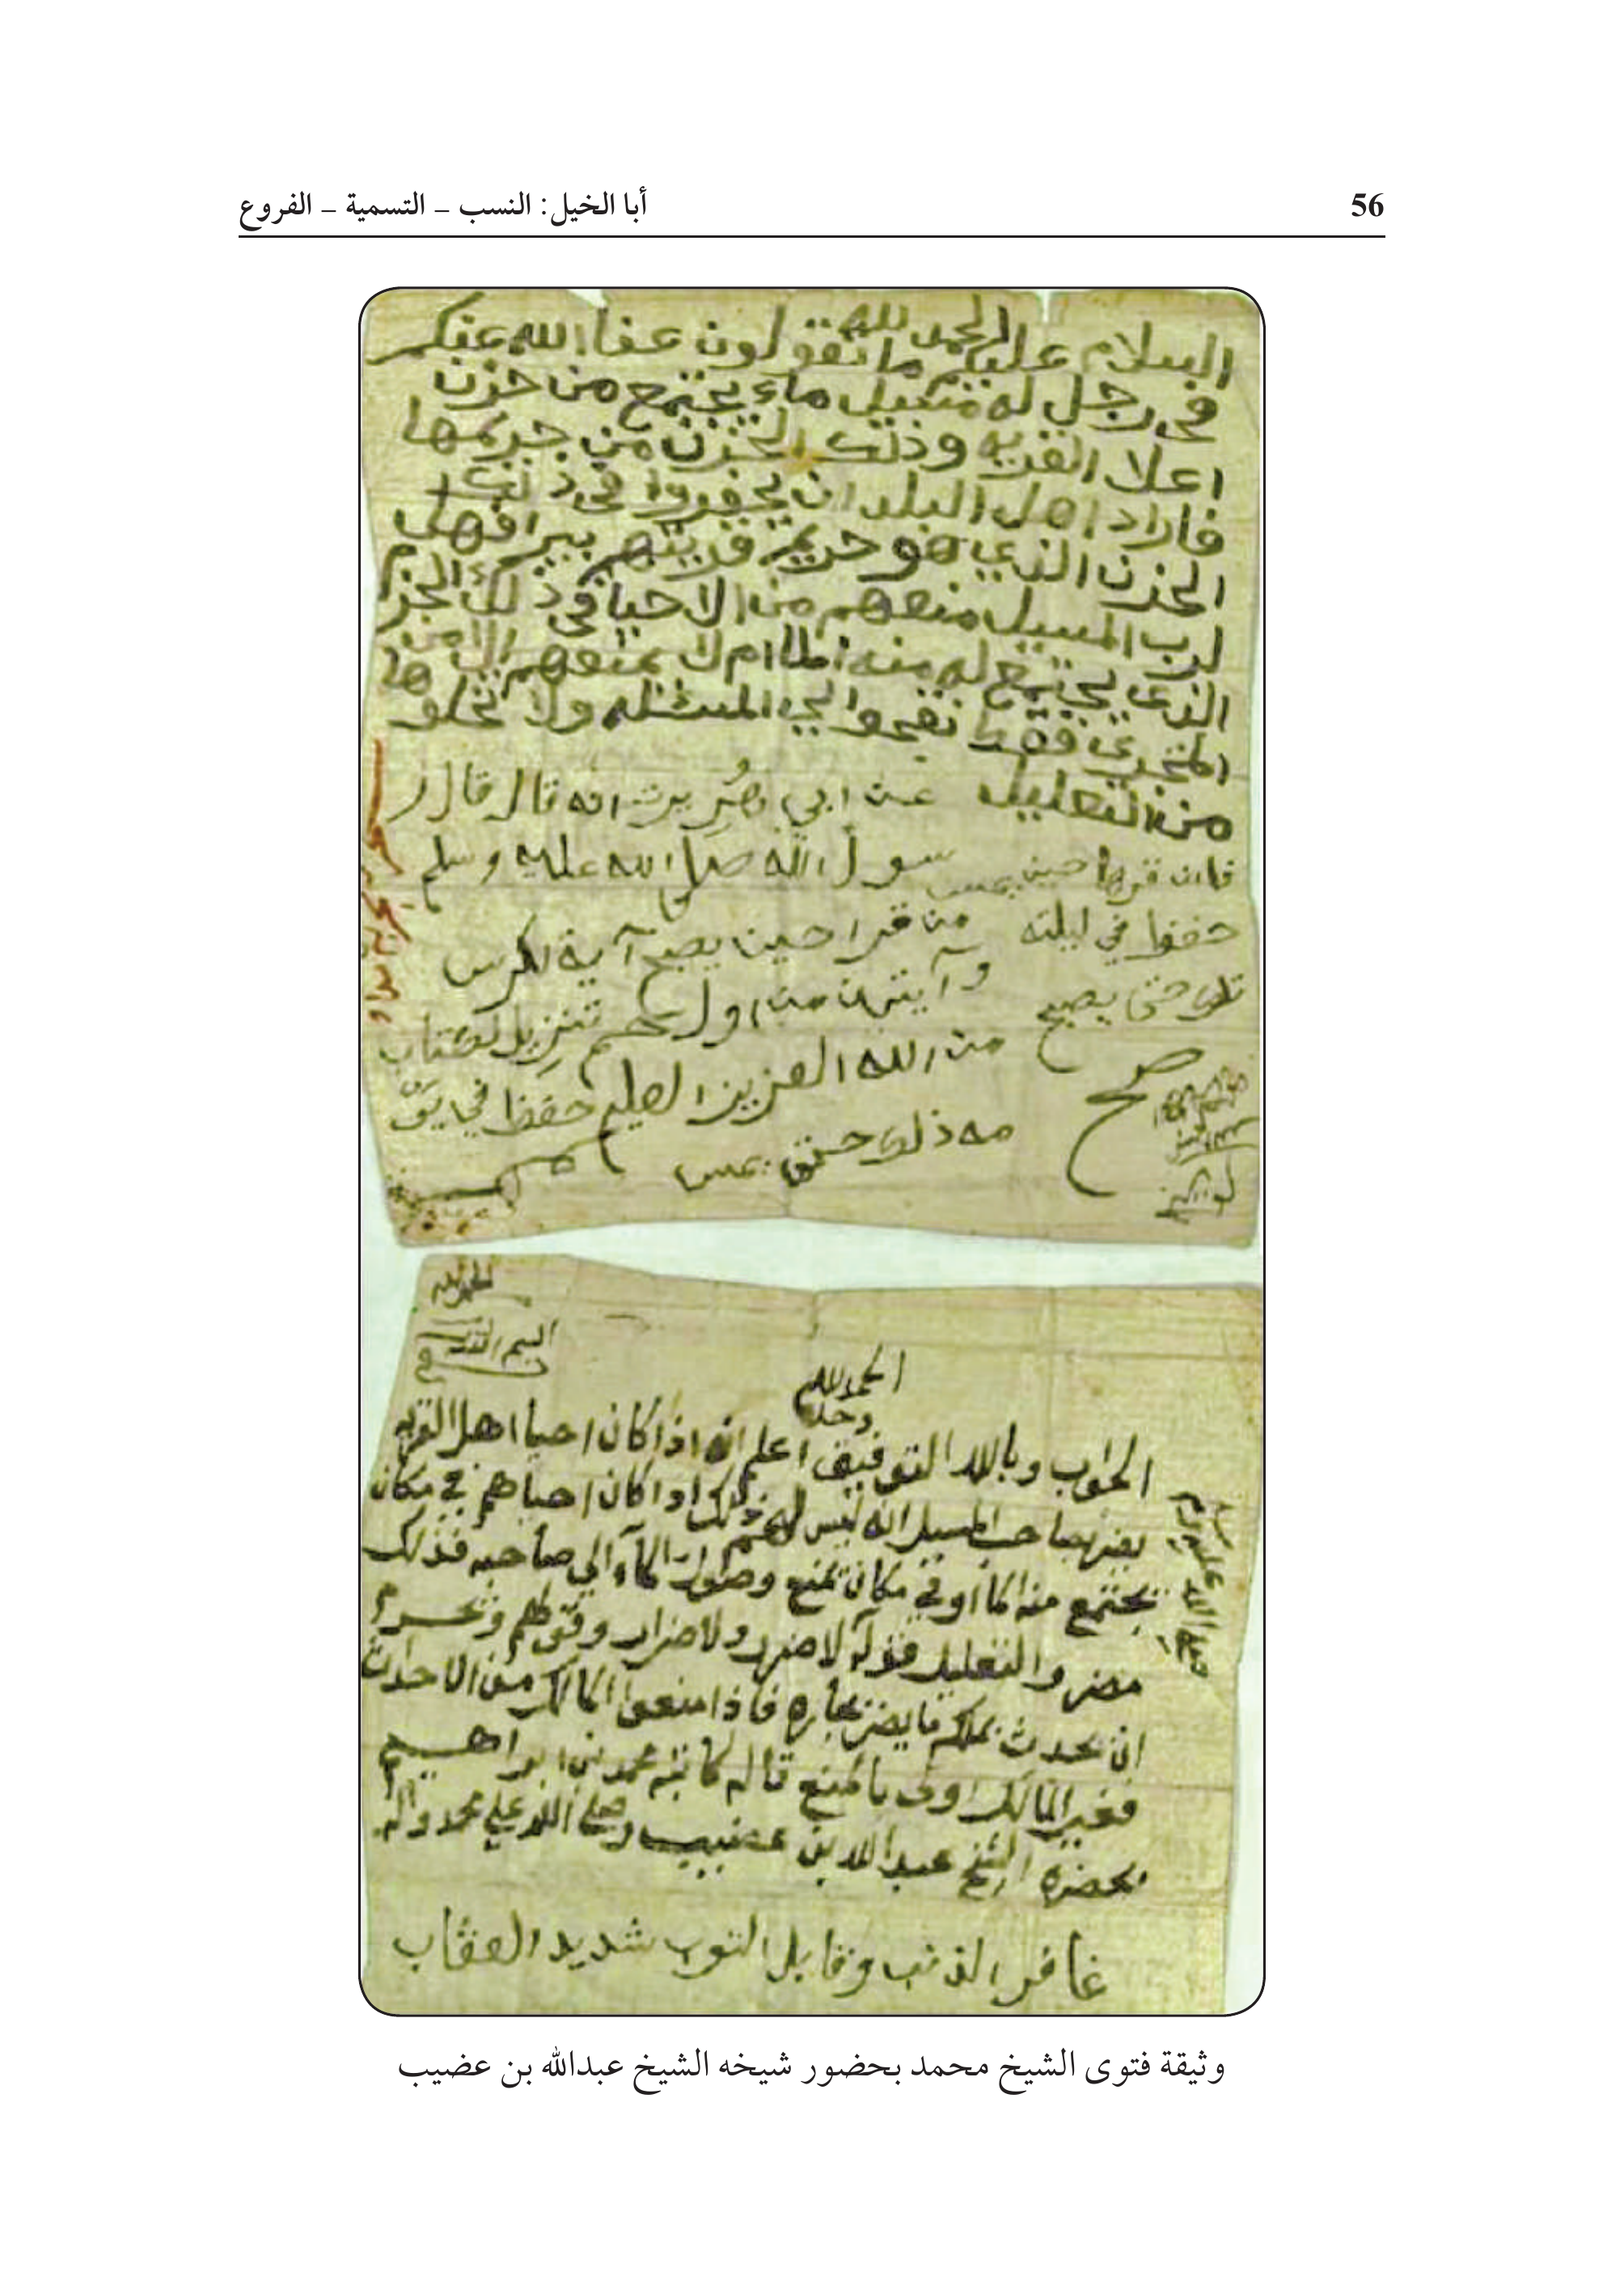 56
أبا الخيل: النسب – التسمية – الفروع
الحمد لله
السلام عليكم ما تقولون عفا الله عنكم
في رجل له مسيل ماء يجتمع من حزن
اعلا القريه وذلك الحزن من حريمها
فاراد اهل البلد ان يحفروا في ذلك
الحزن الذي هو حريم قريتهم بير افهل
لرب المسيل منعهم من الاحيا في ذلك الحزم
الذي يجتمع له منه الما ام لا يمنعهم الا من
المجرى فقط نقحوا لي المسئله ولا تخلوها
من التعليل
عن ابي انه قال قال ر
سول الله صلى الله عليه وسلم
من قرا حين يصبح آية الكرسي
وآيتين من اول حم تنزيل الكتاب
من الله العزيز العليم حفظ في يو
مه ذلك حتى يمسي
فان قراها حين يمسي
حفظ في ليلته
تلك حتى يصبح
صح
الحمد لله
الحمد لله
وحده
الجواب وبالله التوفيق اعلم انه اذا كان احيا اهل القريه
يضر بصاحب المسيل انه ليس لهم ذلك اذا كان احياهم في مكان
يجتمع منه الما او في مكان يمنع وصول الماء الي صاحبه فذلك
مضر والتعليل قوله لا ضرر ولا ضرار وقولهم ويحرم
ان يحدث بملكه ما يضر بجاره فاذا منعوا المالك من الاحداث
فغير المالك اولى بالمنع قاله كاتبه محمد بن ابراهيم
بحضرة الشيخ عبد الله بن عضيب وصلى الله على محمد واله
غافر الذنب وقابل التوب شديد العقاب
وثيقة فتوى الشيخ محمد بحضور شيخه الشيخ عبدالله بن عضيب